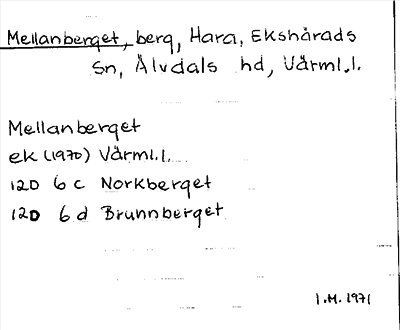 Mellanberget, berg, Hara, Ekshärads
sn, Älvdals hd, Värml.l.
Mellanberget
ek (1970) Värml.l.
12D 6 c Norkberget
12D 6 d Brunnberget
I.M. 1971